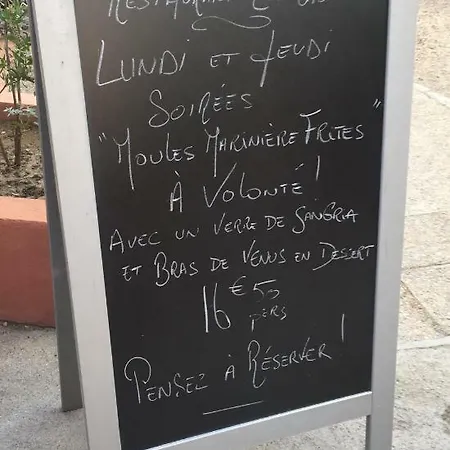 RESTAURANT
LUNDI ET JEUDI
SOIRÉES
"MOULES MARINIÈRE FRITES"
À VOLONTÉ !
AVEC UN VERRE DE SANGRIA
ET BRAS DE VENUS EN DESSERT
16 € 50
PERS
PENSEZ À RÉSERVER !